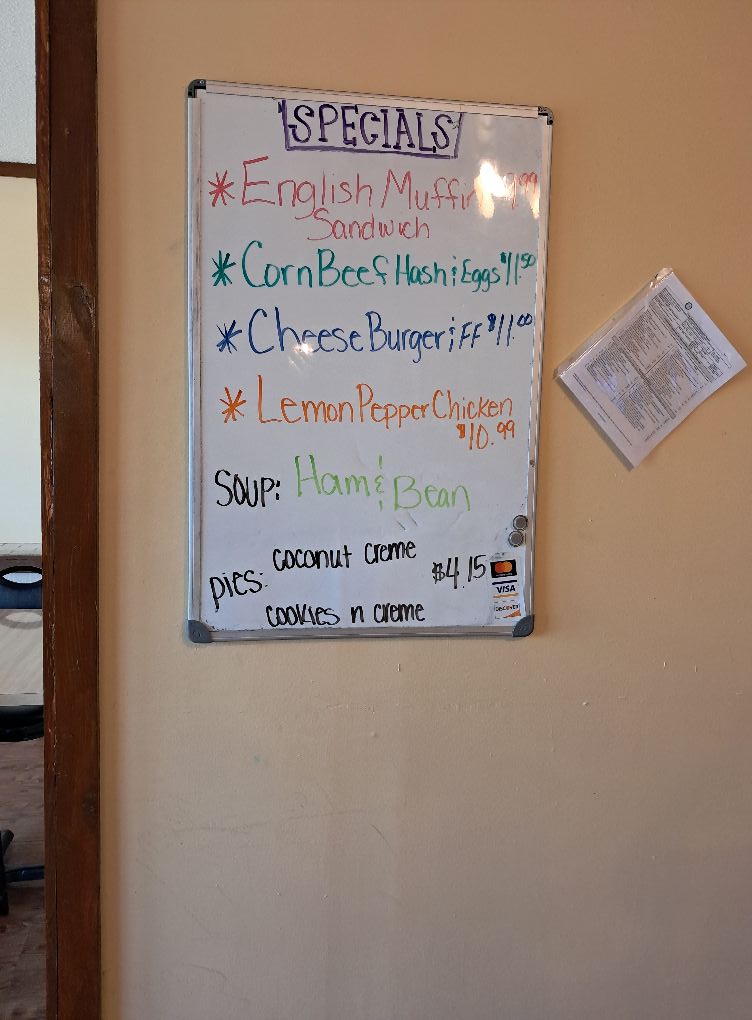 SPECIALS
* English Muffin 9.99
Sandwich
* Corn Beef Hash & Eggs $11.50
* Cheese Burger & FF $11.00
* Lemon Pepper Chicken
$10.99
SOUP: Ham & Bean
pies: coconut creme $4.15
cookies n creme
VISA
DISCOVER